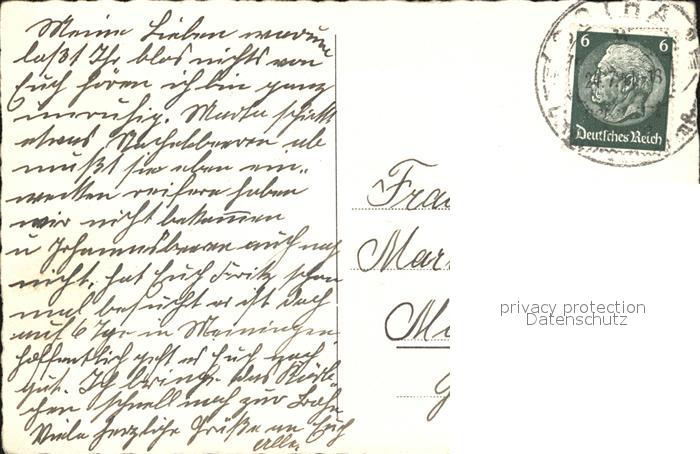 Meine Lieben warum
laßt Ihr blos nichts von
Euch hören ich bin ganz
unruhig. Martha schickt
etwas Stachelbeeren ab
müßt sie eben ein-
wecken reifere haben
wir nicht bekommen
u Johannisbeeren auch noch
nicht, hat Euch Fritz schon
mal besucht er ist doch
auf 6 Tge in Meiningen
hoffentlich geht es Euch noch
gut. Ich bringe das
schnell noch zur Bahn
Viele herzliche Grüße an Euch
alle
Frau
Mar
M
6 6
Deutsches Reich
privacy protection
Datenschutz